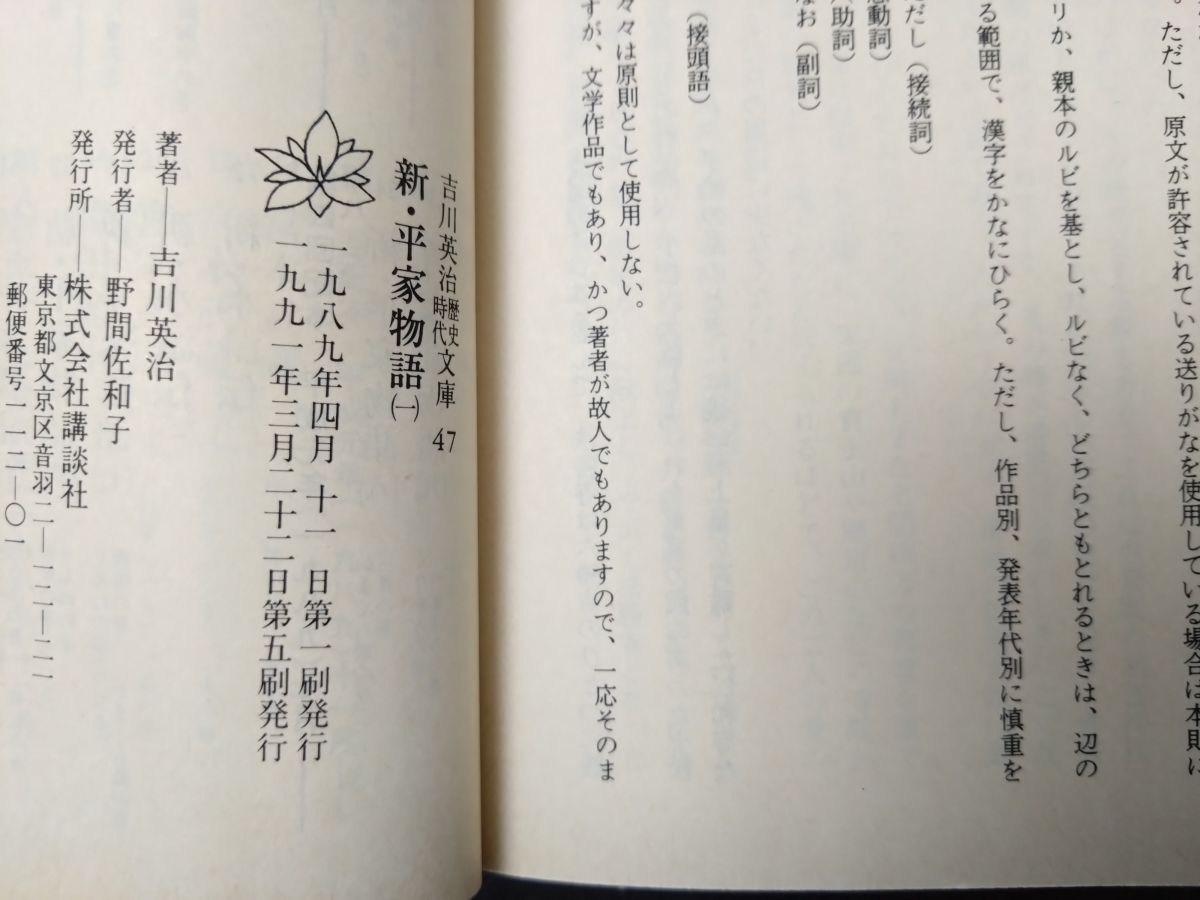 。ただし、原文が許容されている送りがなを使用している場合は本則に
リか、親本のルビを基とし、ルビなく、どちらともとれるときは、辺の
る範囲で、漢字をかなにひらく。ただし、作品別、発表年代別に慎重を
だし（接続詞）
感動詞）
助詞）
なお（副詞）
（接頭語）
々々は原則として使用しない。
すが、文学作品でもあり、かつ著者が故人でもありますので、一応そのま
吉川英治歴史時代文庫 47
新・平家物語㈠
一九八九年四月 十一 日第一刷発行
一九九一年三月二十二日第五刷発行
著者――吉川英治
発行者――野間佐和子
発行所――株式会社講談社
東京都文京区音羽二―一二―二一
郵便番号一一二―〇一